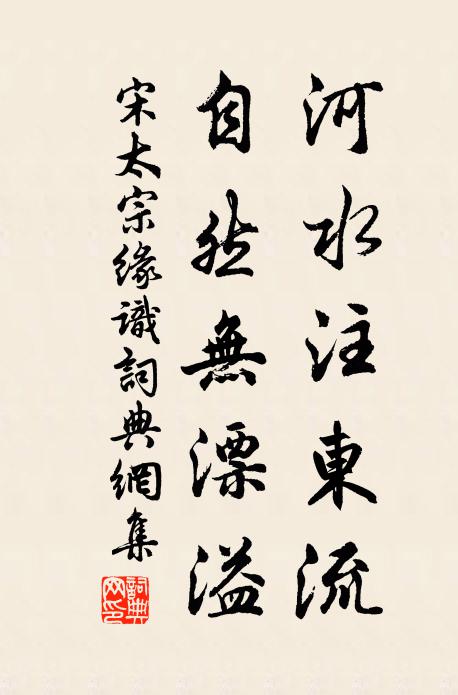 河水注東流
自然無漂溢
宋太宗緣識詞典網集
詞典网印